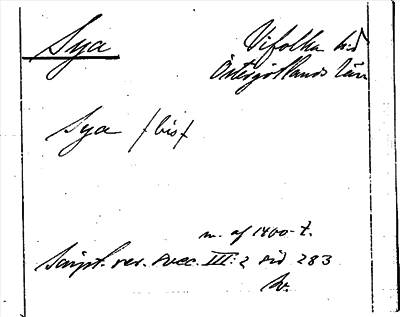 Sya
Vifolka hd
Östergötlands län
Sya /bis/
m. af 1400-t.
Script. rer. svec. III:2 sid 283
Sv.